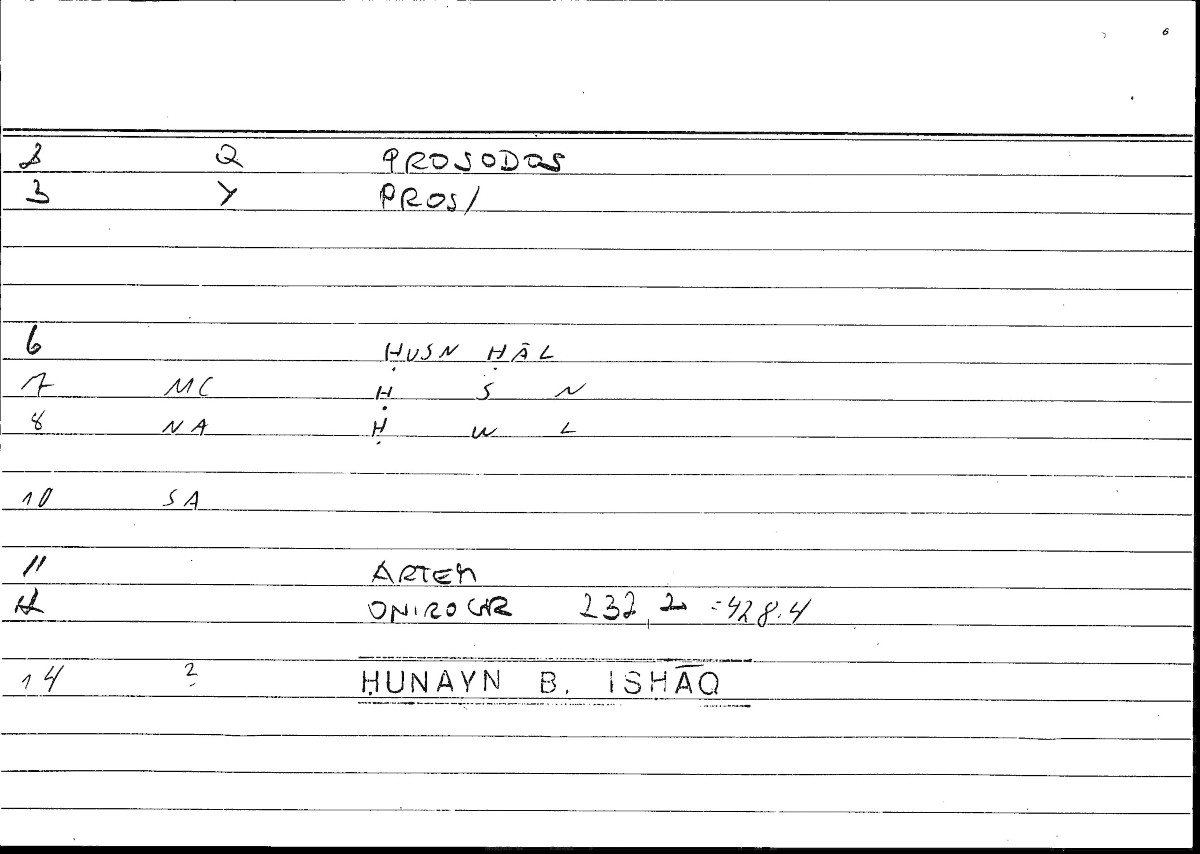 2 Q PROSODOS
3 Y PROS/
6 ḤUSN ḤĀL
7 MC Ḥ S N
8 NA Ḥ W L
10 SA
11 ARTEM
12 ONIROCR 232,2 =428.4
14 2 ḤUNAYN B. ISḤĀQ